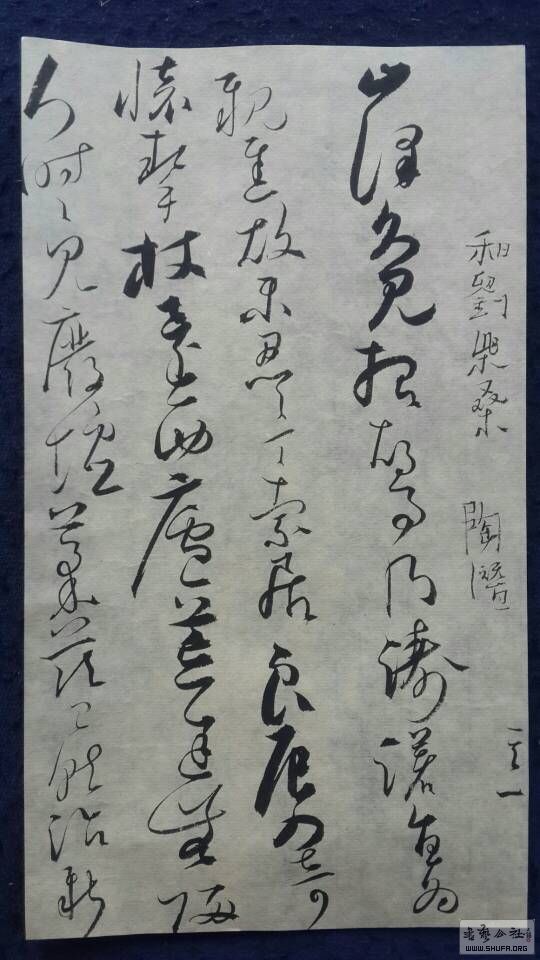 和劉柴桑 陶潛 其一
山澤久見招胡事乃躊躇直為
親舊故未忍言索居良辰入奇
懷挈杖還西廬荒途無歸
人時々見廢墟茅茨已就治新
书艺公社
WWW.SHUFA.ORG